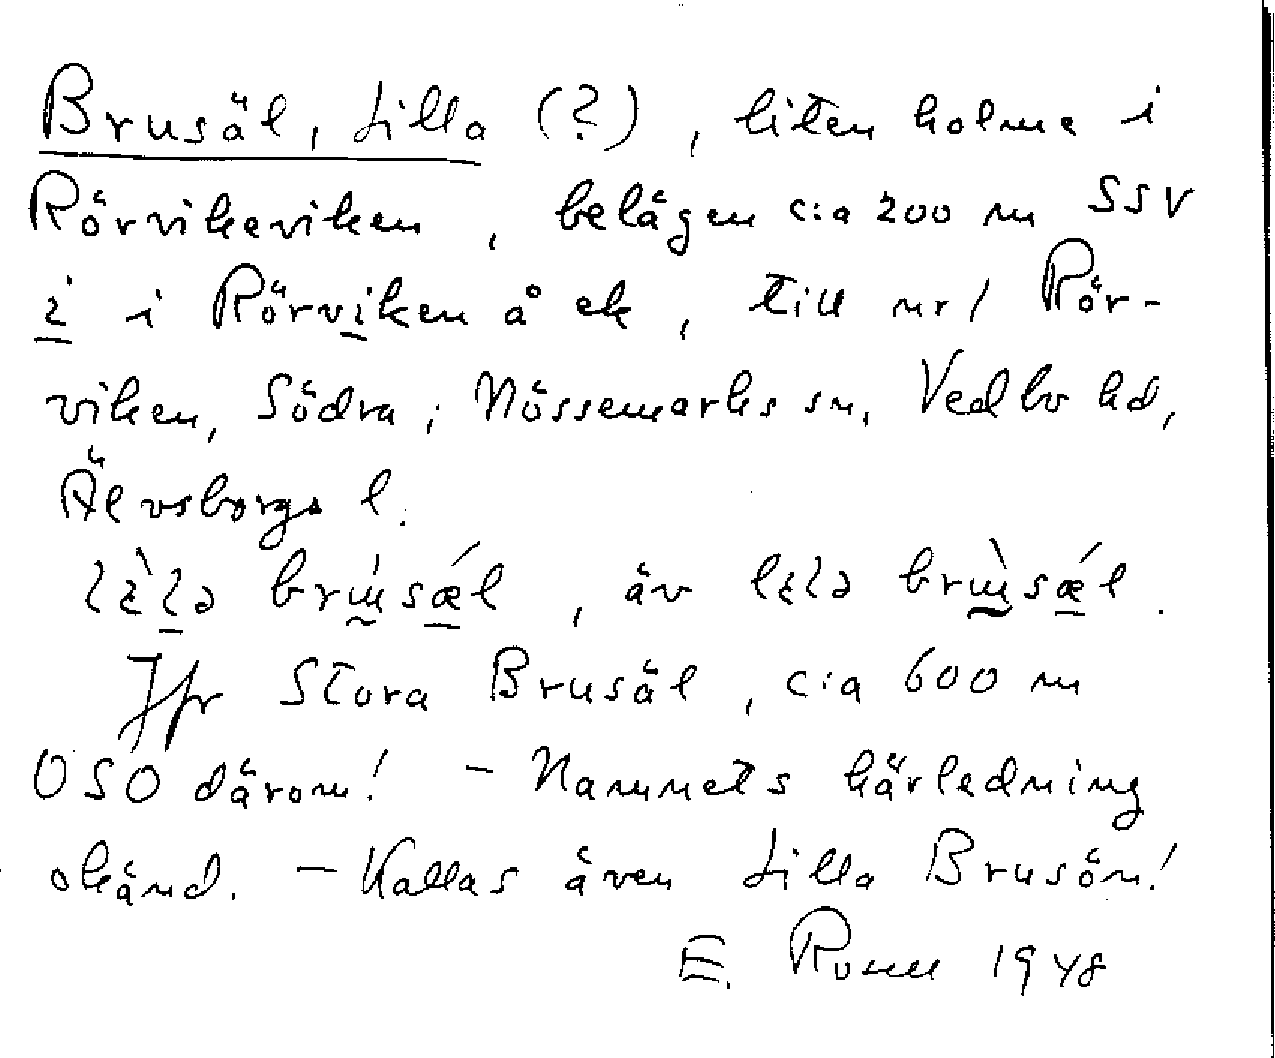 Brusäl, Lilla (?), liten holme i
Rörvikeviken, belägen c:a 200 m SSV
i i Rörviken å ek, till nr 1 Rör-
viken, Södra, Nössemarks sn, Vedbo hd,
Älvsborgs l.
brusäl, äv
Jfr Stora Brusäl, c:a 600 m
OSO därom! - Namnets härledning
okänd. - Kallas även Lilla Brusön!
E. 1948